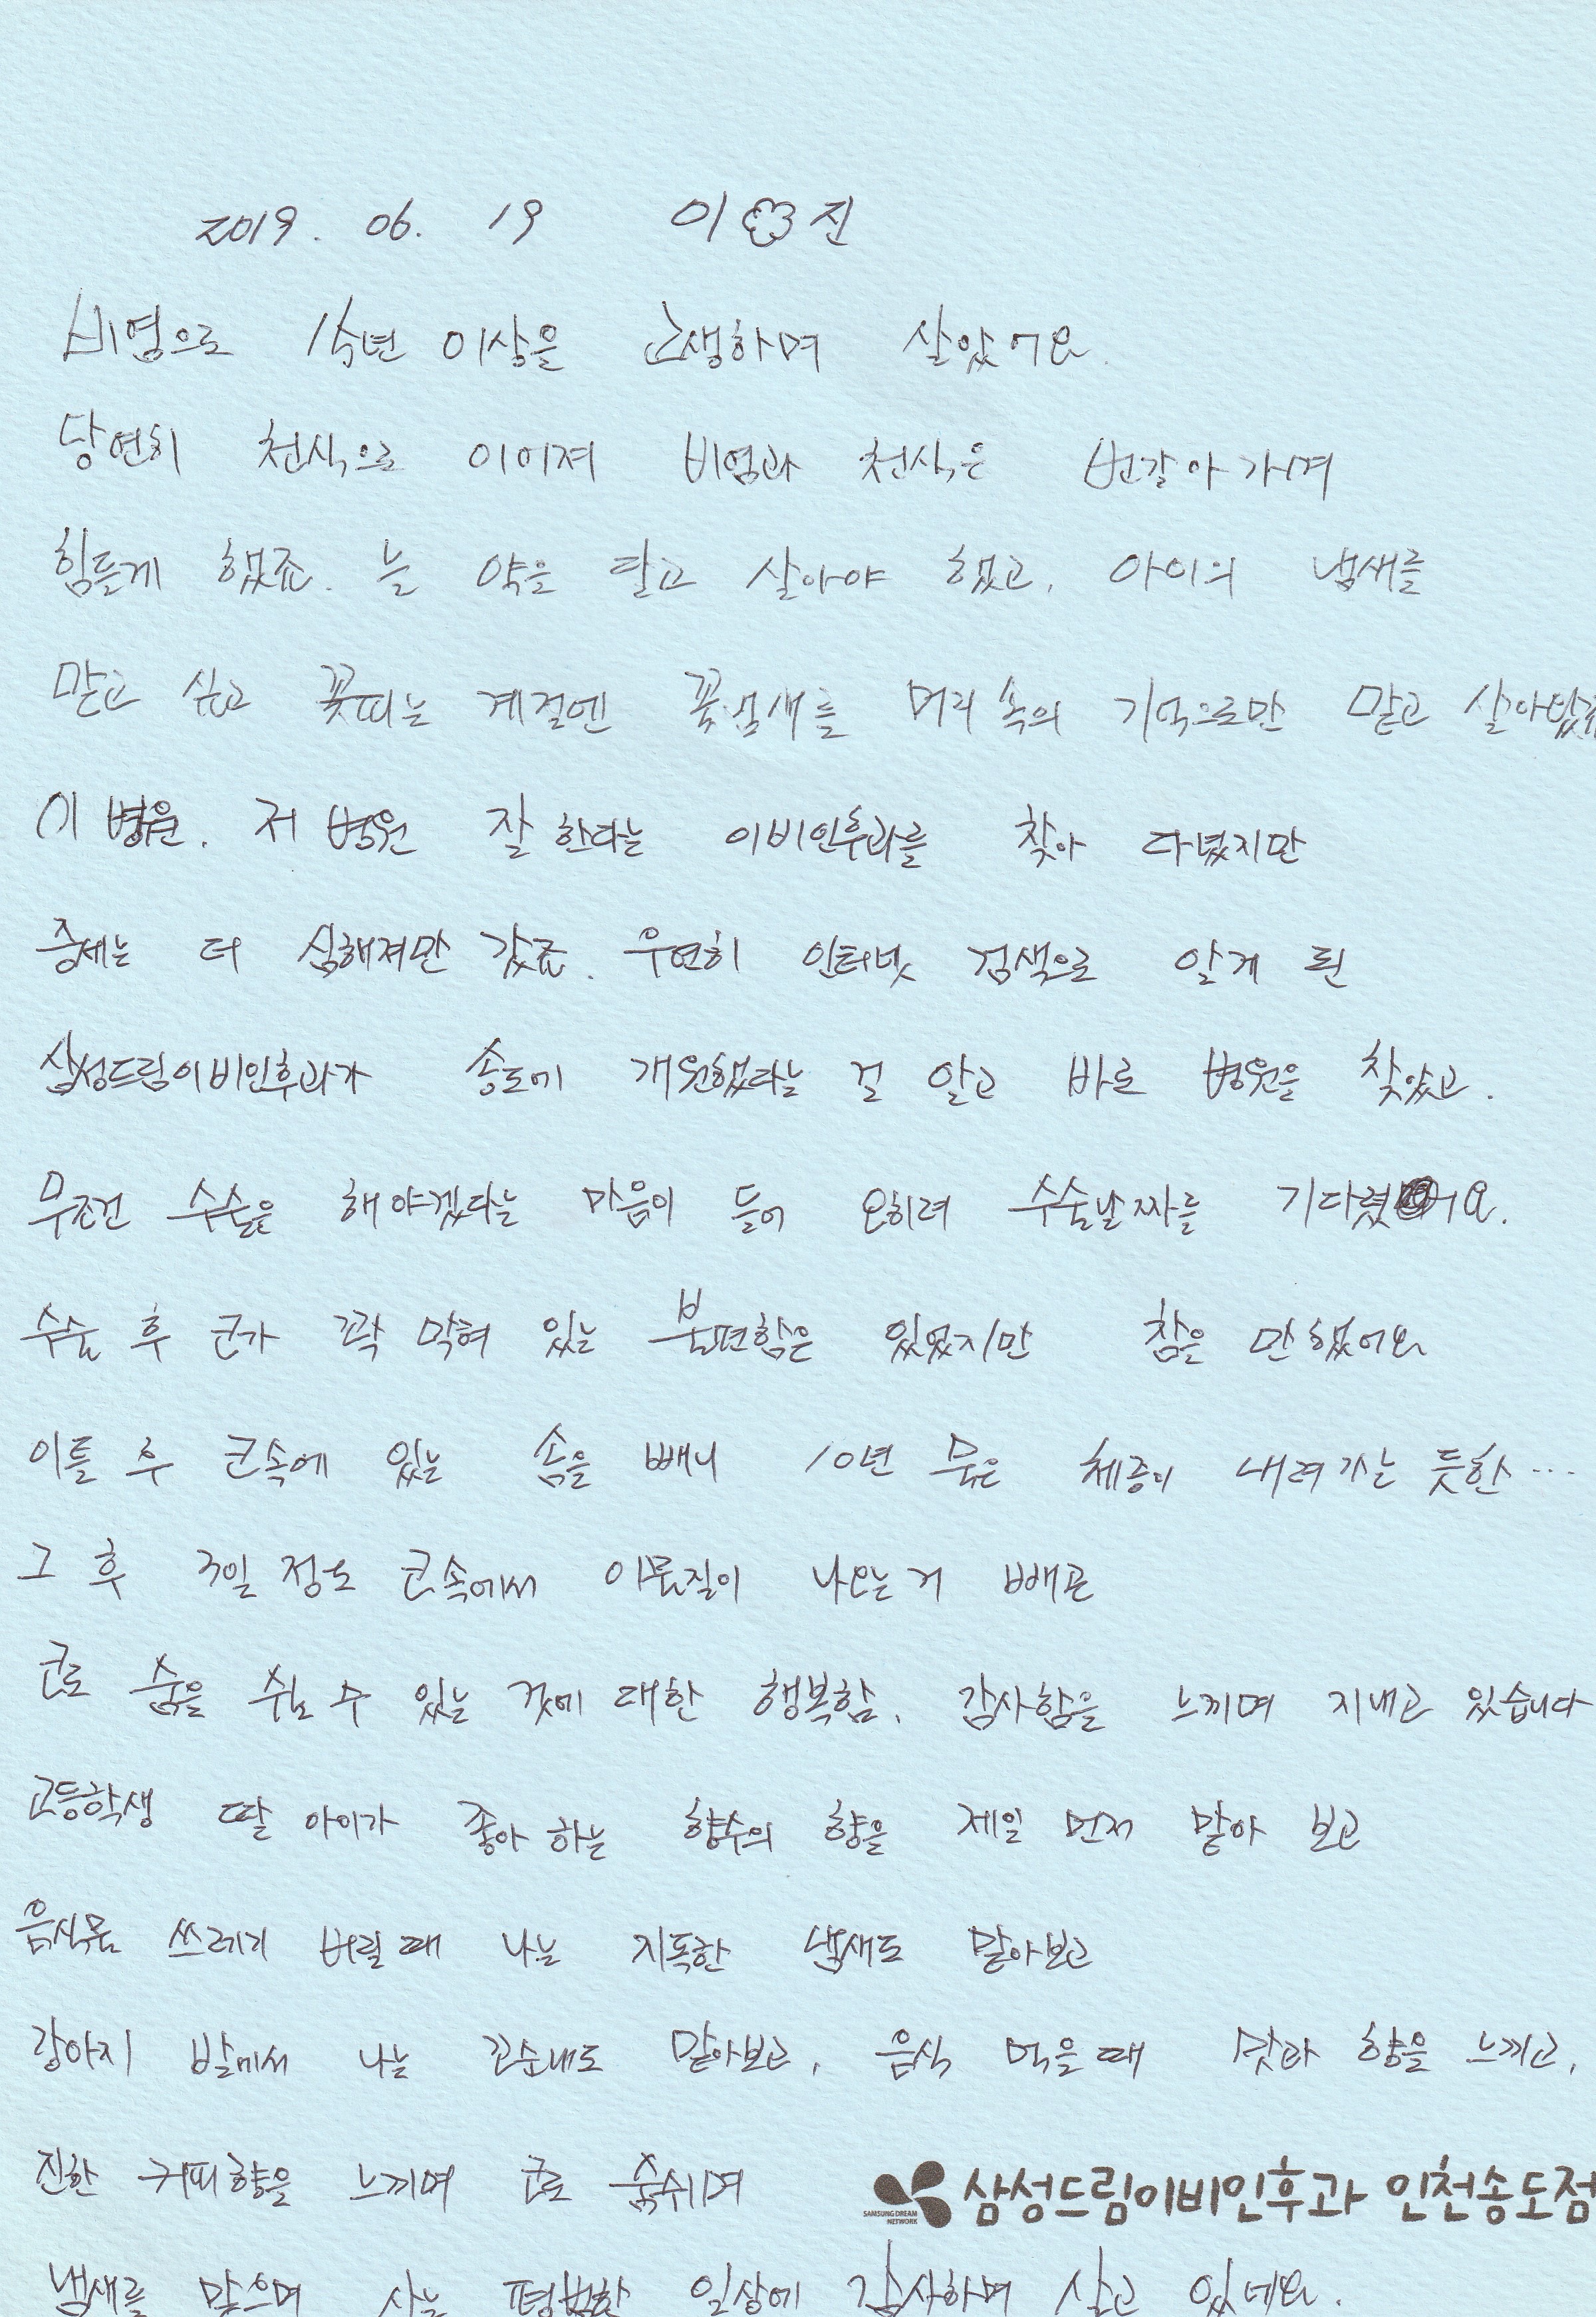 2019. 06. 19 이 진
비염으로 십수년 이상을 고생하며 살았어요.
당연히 천식으로 이어져 비염과 천식은 번갈아 가며
힘들게 했죠. 늘 약을 달고 살아야 했고, 아이의 냄새를
맡고 싶고 꽃피는 계절엔 꽃냄새를 머리 속의 기억으로만 맡고 살아왔죠
이 병원, 저 병원 잘 한다는 이비인후과를 찾아 다녔지만
증세는 더 심해져만 갔죠. 우연히 인터넷 검색으로 알게 된
삼성드림이비인후과가 송도에 개원했다는 걸 알고 바로 병원을 찾았고.
무조건 수술을 해야겠다는 마음이 들어 오히려 수술날짜를 기다렸어요.
수술 후 코가 꽉 막혀 있는 불편함은 있었지만 참을 만 했어요
이틀 후 코속에 있는 솜을 빼니 10년 묵은 체증이 내려가는 듯한...
그 후 3일 정도 코속에서 이물질이 나오는 거 빼곤
코로 숨을 쉴 수 있는 것에 대한 행복함, 감사함을 느끼며 지내고 있습니다
고등학생 딸 아이가 좋아 하는 향수의 향을 제일 먼저 맡아 보고
음식물 쓰레기 버릴 때 나는 지독한 냄새도 맡아보고
강아지 발에서 나는 꼬순내도 맡아보고, 음식 먹을 때 맛과 향을 느끼고,
진한 커피향을 느끼며 코로 숨쉬며
SAMSUNG DREAM NETWORK 삼성드림이비인후과 인천송도점
냄새를 맡으며 사는 평범한 일상에 감사하며 살고 있네요.